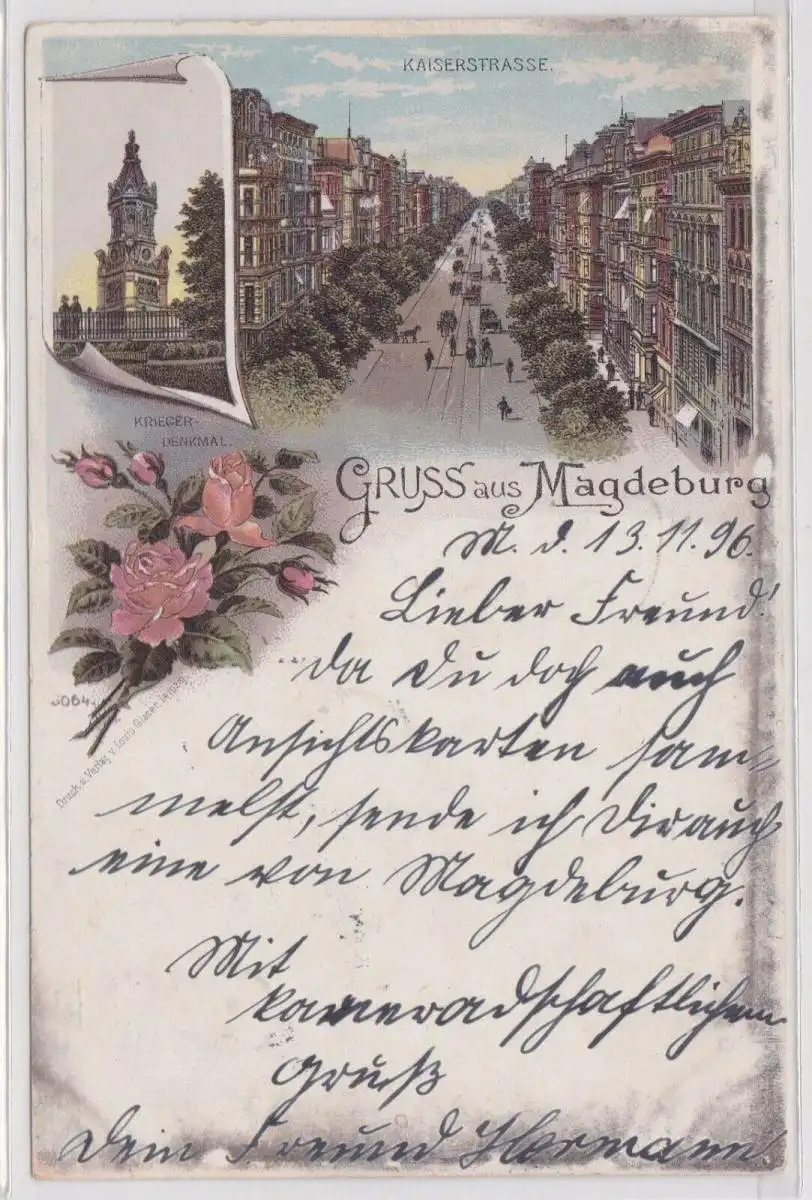 KAISERSTRASSE.
KRIEGER-
DENKMAL.
GRUSS aus Magdeburg
M. d. 13.11.96.
Lieber Freund!
da Du doch auch
Ansichtskarten sam-
melst, sende ich Dir auch
eine von Magdeburg.
Mit
kameradschaftlichem
Gruß
Dein Freund Hermann
5064.
Druck u. Verlag v. Louis Glaser, Leipzig.